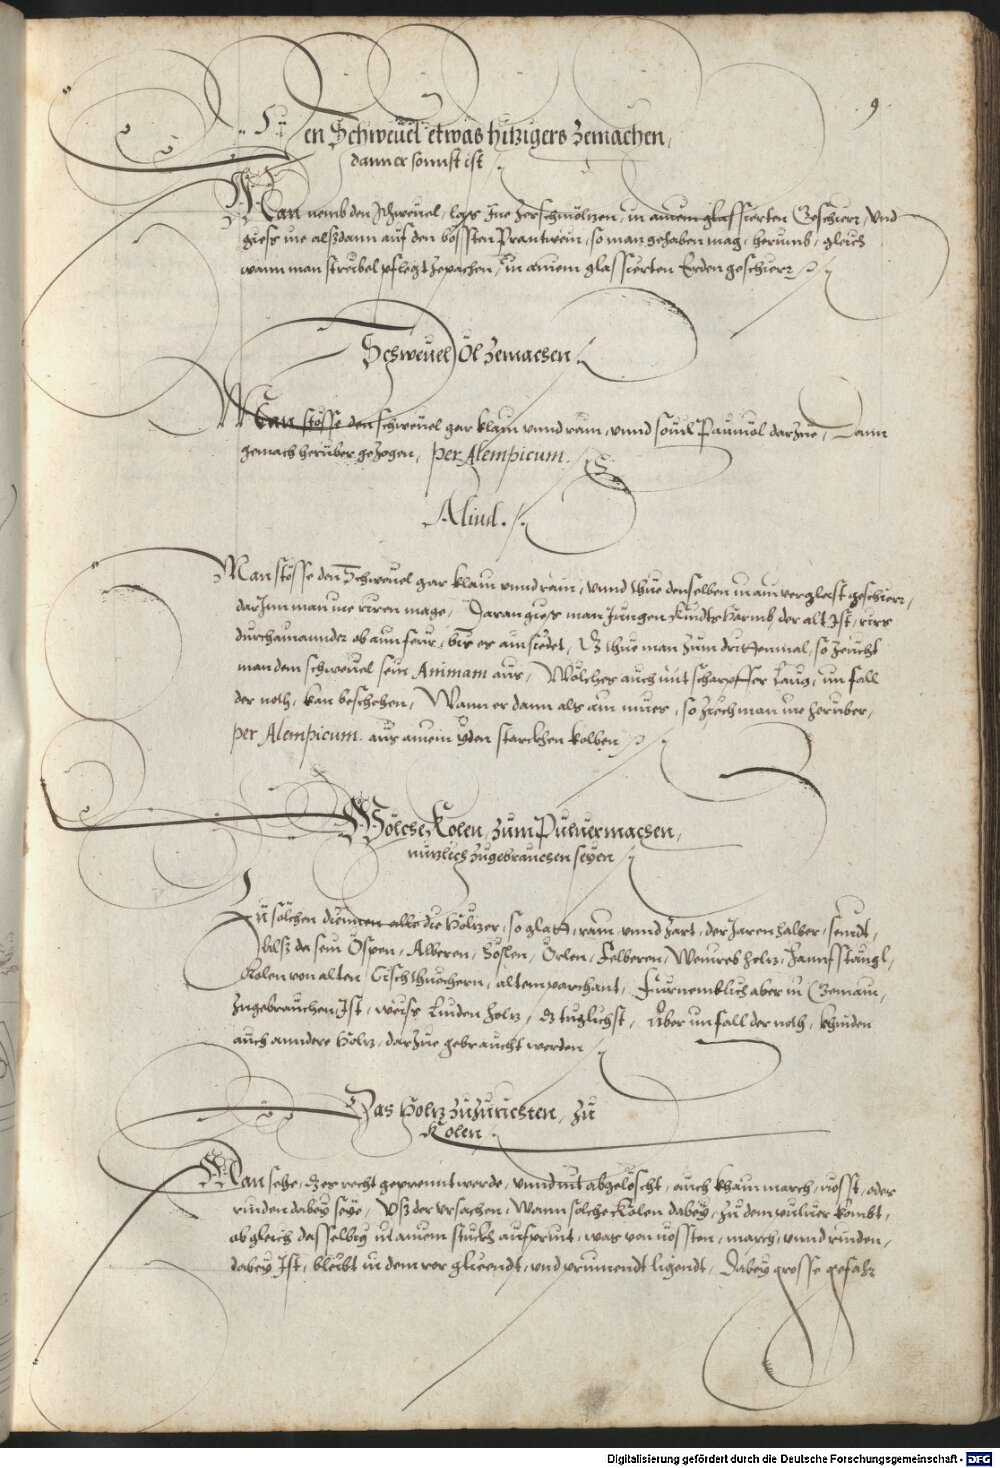 9
Den Schweuel etwas hitzigers zemachen,
dann er sonnst ist
Man nemb den Schweuel, lass Ine zerschmöltzen, in ainem glassierten Geschierr, Vnd
giess ine alssdann auf den bössten Prantwein, so man gehaben mag, herumb, gleich
wann man streibel pflegt zepachen, in ainem glassierten Erden geschierr
Schweuel Öl zemachen
Man stösse den schweuel gar klain vnnd rain, vnnd souil Paumöl darzue, Dann
gemach herüber gezogen, per Alempicum.
Aliud.
Man stösse den Schweuel gar klain vnnd rain, vnnd thue denselben in ain verglast geschierr,
darInn man ine rüren mage, Daran giess man Jungen Kindts Harmb, der alt Ist, rirs
durchainannder ob ainn feur, bis es ainsiedet, Dz thue man zum drittenmal, so zeucht
man dem schweuel sein Animam aus, Wölches auch mit scharpffer Laug, im fall
der noth, kan beschehen, Wann er dann als ain mues, so ziech man ine herüber,
per Alempicum. aus ainem yden starckhen kolben
Wölche Kolen, zum Puluermachen,
nützlich zugebrauchen seyen
Zu sölchen diennen alle die Höltzer, so glatt, rain, vnnd zart, der Jaren halber, seindt,
Alss da sein Öspen, Alberen, Häslen, Örlen, Felberen, Weinreb holtz, Hannfstängl,
Kolen von alten Tischthuechern, altem parchant, Fürnemblich aber in Gemain,
Zugebrauchen Ist, weiss Linden holtz, dz tuglichst, Aber im fall der noth, khinden
auch anndere Höltz, darzue gebraucht werden
Das Holtz zuzurichten, zu
Kolen
Man sehe, dz es recht geprennt werde, vnnd nit abgelöscht, auch khain march, nösst, oder
rinden dabey seye, Vss der vrsachen, Wann solche Kolen dabey, zu dem puluer kombt,
ob gleich dasselbig in ainem stuckh aufprint, was von nössten, march, vnnd rinden,
dabey Ist, bleibt in dem ror glieendt, vnd prinnendt ligendt, Dabey grosse gefahr
Digitalisierung gefördert durch die Deutsche Forschungsgemeinschaft - DFG